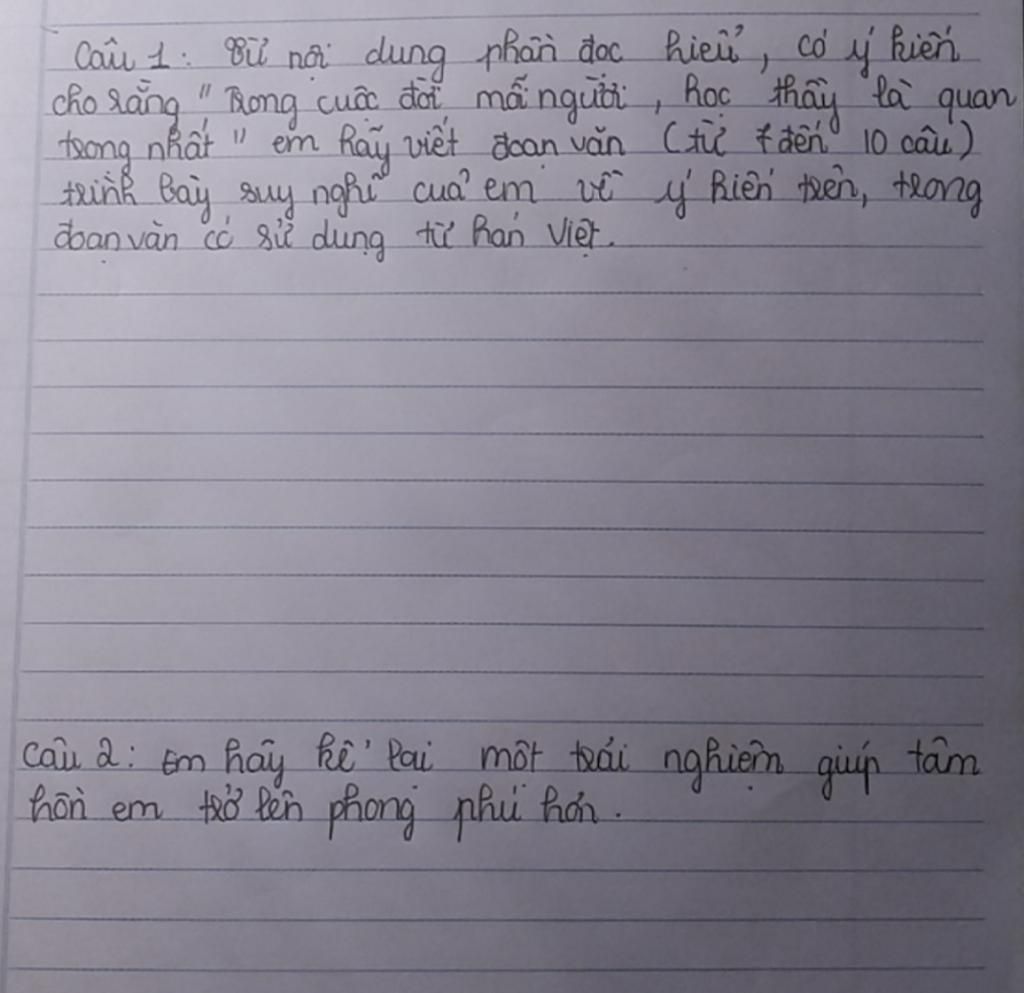 Câu 1: Từ nội dung phần đọc hiểu, có ý kiến
cho rằng " Trong cuộc đời mỗi người, học thầy là quan
trọng nhất " em hãy viết đoạn văn (từ 7 đến 10 câu)
trình bày suy nghĩ của em về ý kiến trên, trong
đoạn văn có sử dụng từ hán Việt.
Câu 2: Em hãy kể lại một trải nghiệm giúp tâm
hồn em trở lên phong phú hơn.